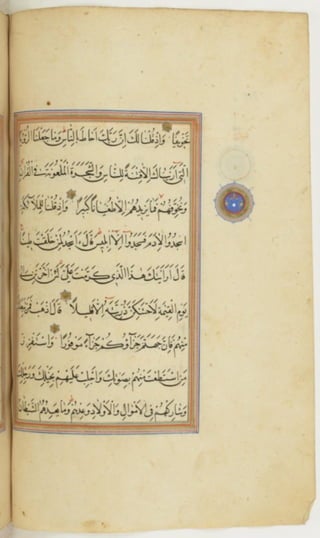 تَخْوِيفًا وَإِذْ قُلْنَا لَكَ إِنَّ رَبَّكَ أَحَاطَ بِالنَّاسِ وَمَا جَعَلْنَا الرُّؤْيَا
الَّتِي أَرَيْنَاكَ إِلَّا فِتْنَةً لِلنَّاسِ وَالشَّجَرَةَ الْمَلْعُونَةَ فِي الْقُرْآنِ
وَنُخَوِّفُهُمْ فَمَا يَزِيدُهُمْ إِلَّا طُغْيَانًا كَبِيرًا وَإِذْ قُلْنَا لِلْمَلَائِكَةِ
اسْجُدُوا لِآدَمَ فَسَجَدُوا إِلَّا إِبْلِيسَ قَالَ ءَأَسْجُدُ لِمَنْ خَلَقْتَ طِينًا
قَالَ أَرَأَيْتَكَ هَذَا الَّذِي كَرَّمْتَ عَلَيَّ لَئِنْ أَخَّرْتَنِ إِلَى
يَوْمِ الْقِيمَةِ لَأَحْتَنِكَنَّ ذُرِّيَّتَهُ إِلَّا قَلِيلًا قَالَ اذْهَبْ فَمَنْ تَبِعَكَ
مِنْهُمْ فَإِنَّ جَهَنَّمَ جَزَاؤُكُمْ جَزَاءً مَوْفُورًا وَاسْتَفْزِزْ
مَنِ اسْتَطَعْتَ مِنْهُمْ بِصَوْتِكَ وَأَجْلِبْ عَلَيْهِمْ بِخَيْلِكَ وَرَجِلِكَ
وَشَارِكْهُمْ فِي الْأَمْوَالِ وَالْأَوْلَادِ وَعِدْهُمْ وَمَا يَعِدُهُمُ الشَّيْطَانُ